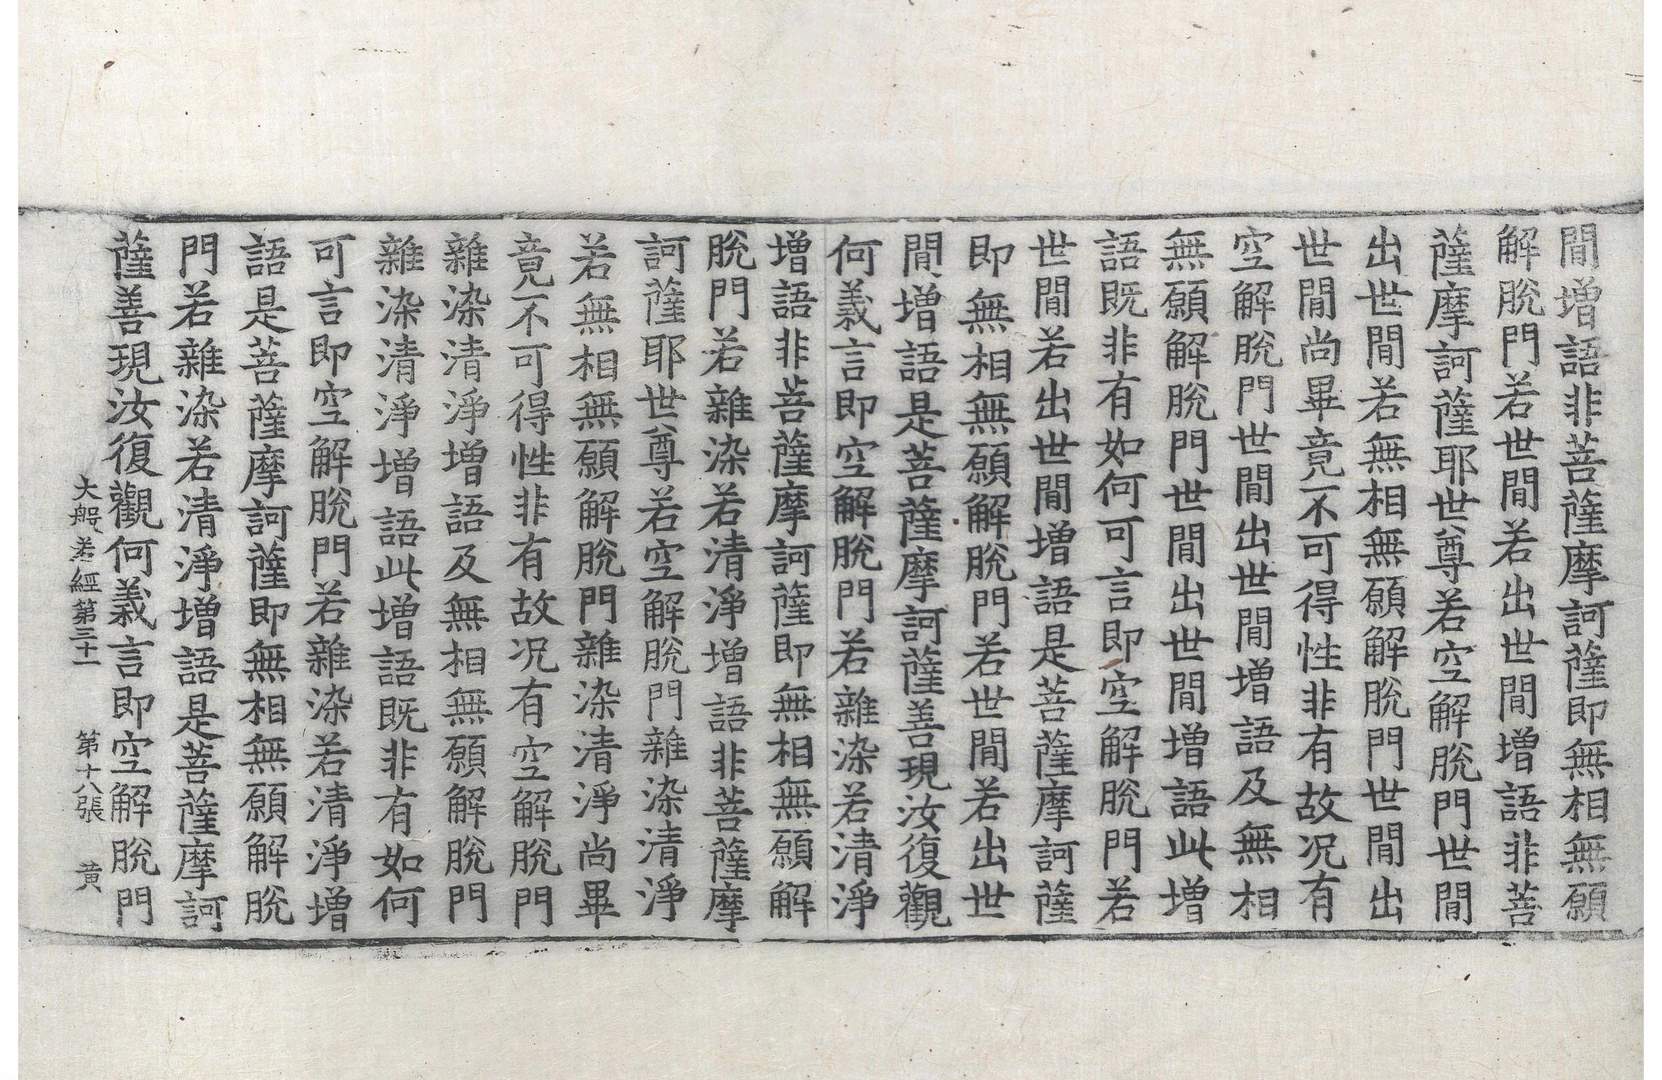 間增語非菩薩摩訶薩即無相無願
解脫門若世間若出世間增語非菩
薩摩訶薩耶世尊若空解脫門世間
出世間若無相無願解脫門世間出
世間尚畢竟不可得性非有故况有
空解脫門世間出世間增語及無相
無願解脫門世間出世間增語此增
語既非有如何可言即空解脫門若
世間若出世間增語是菩薩摩訶薩
即無相無願解脫門若世間若出世
間增語是菩薩摩訶薩善現汝復觀
何義言即空解脫門若雜染若清淨
增語非菩薩摩訶薩即無相無願解
脫門若雜染若清淨增語非菩薩摩
訶薩耶世尊若空解脫門雜染清淨
若無相無願解脫門雜染清淨尚畢
竟不可得性非有故况有空解脫門
雜染清淨增語及無相無願解脫門
雜染清淨增語此增語既非有如何
可言即空解脫門若雜染若清淨增
語是菩薩摩訶薩即無相無願解脫
門若雜染若清淨增語是菩薩摩訶
薩善現汝復觀何義言即空解脫門
大般若經第三十一 第十八張 黄